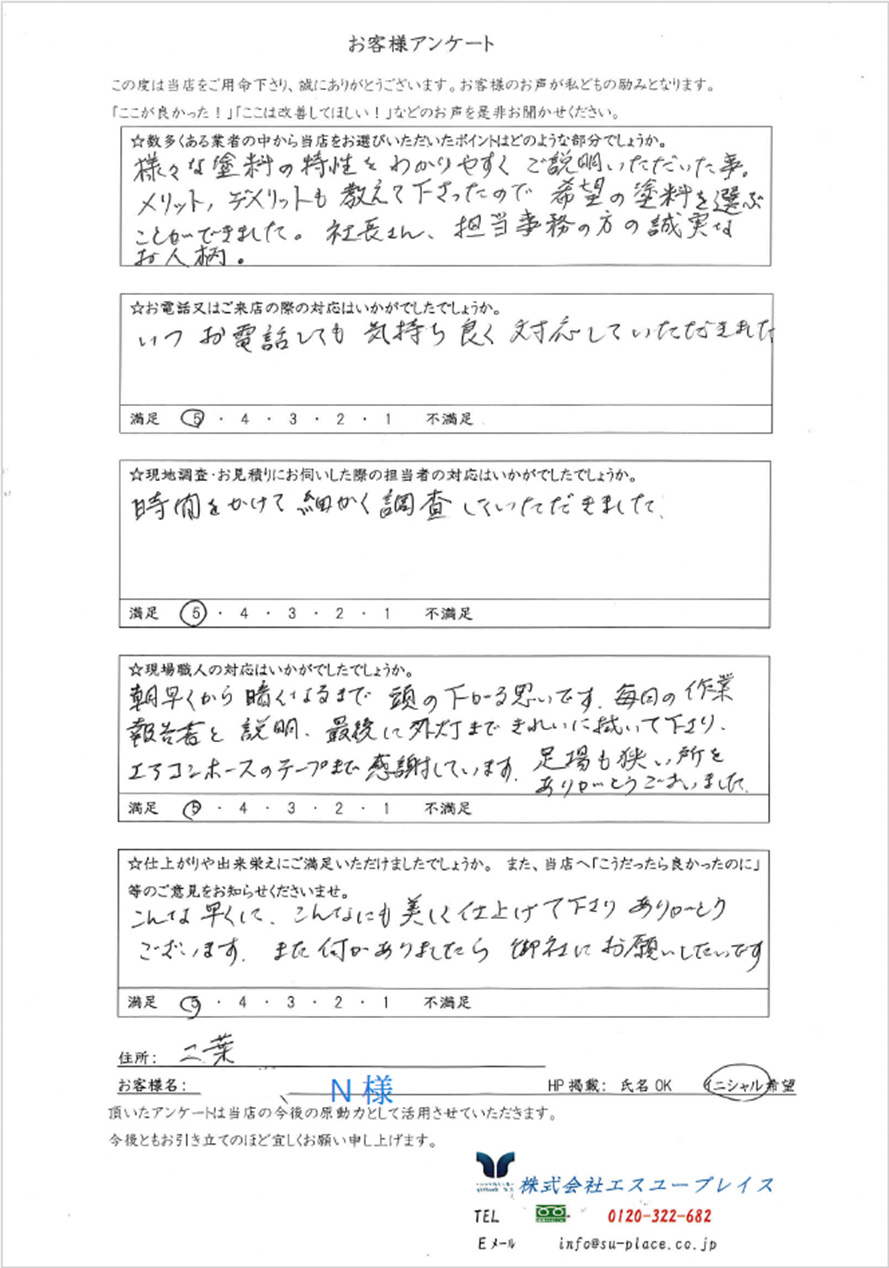 お客様アンケート
この度は当店をご用命下さり、誠にありがとうございます。お客様のお声が私どもの励みとなります。
「ここが良かった！」「ここは改善してほしい！」などのお声を是非お聞かせください。
☆数多くある業者の中から当店をお選びいただいたポイントはどのような部分でしょうか。
様々な塗料の特性をわかりやすくご説明いただいた事。
メリット,デメリットも教えて下さったので希望の塗料を選ぶ
ことができました。社長さん、担当事務の方の誠実な
お人柄。
☆お電話又はご来店の際の対応はいかがでしたでしょうか。
いつお電話しても気持ち良く対応していただきました
満足 5 ・ 4 ・ 3 ・ 2 ・ 1 不満足
☆現地調査・お見積りにお伺いした際の担当者の対応はいかがでしたでしょうか。
時間をかけて細かく調査していただきました。
満足 5 ・ 4 ・ 3 ・ 2 ・ 1 不満足
☆現場職人の対応はいかがでしたでしょうか。
朝早くから暗くなるまで頭の下がる思いです。毎日の作業
報告書と説明、最後に外灯まできれいに拭いて下さり、
エアコンホースのテープまで感謝しています。足場も狭い所を
ありがとうございました。
満足 5 ・ 4 ・ 3 ・ 2 ・ 1 不満足
☆仕上がりや出来栄えにご満足いただけましたでしょうか。 また、当店へ「こうだったら良かったのに」
等のご意見をお知らせくださいませ。
こんな早くて、こんなにも美しく仕上げて下さりありがとう
ございます。また何かありましたら御社にお願いしたいです
満足 5 ・ 4 ・ 3 ・ 2 ・ 1 不満足
住所： 二葉
お客様名： N 様 HP掲載： 氏名OK イニシャル希望
頂いたアンケートは当店の今後の原動力として活用させていただきます。
今後ともお引き立てのほど宜しくお願い申し上げます。
株式会社エスユープレイス
TEL 0120-322-682
Eメール info@su-place.co.jp